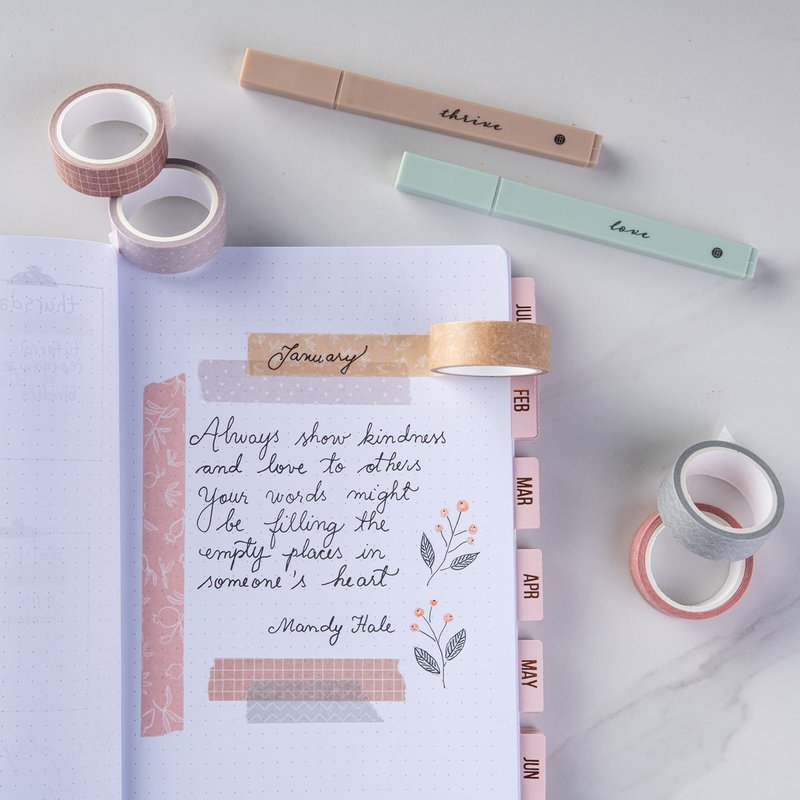 thrive
love
January
Always show kindness
and love to others
Your words might
be filling the
empty places in
someone's heart
Mandy Hale
FEB
MAR
APR
MAY
JUN